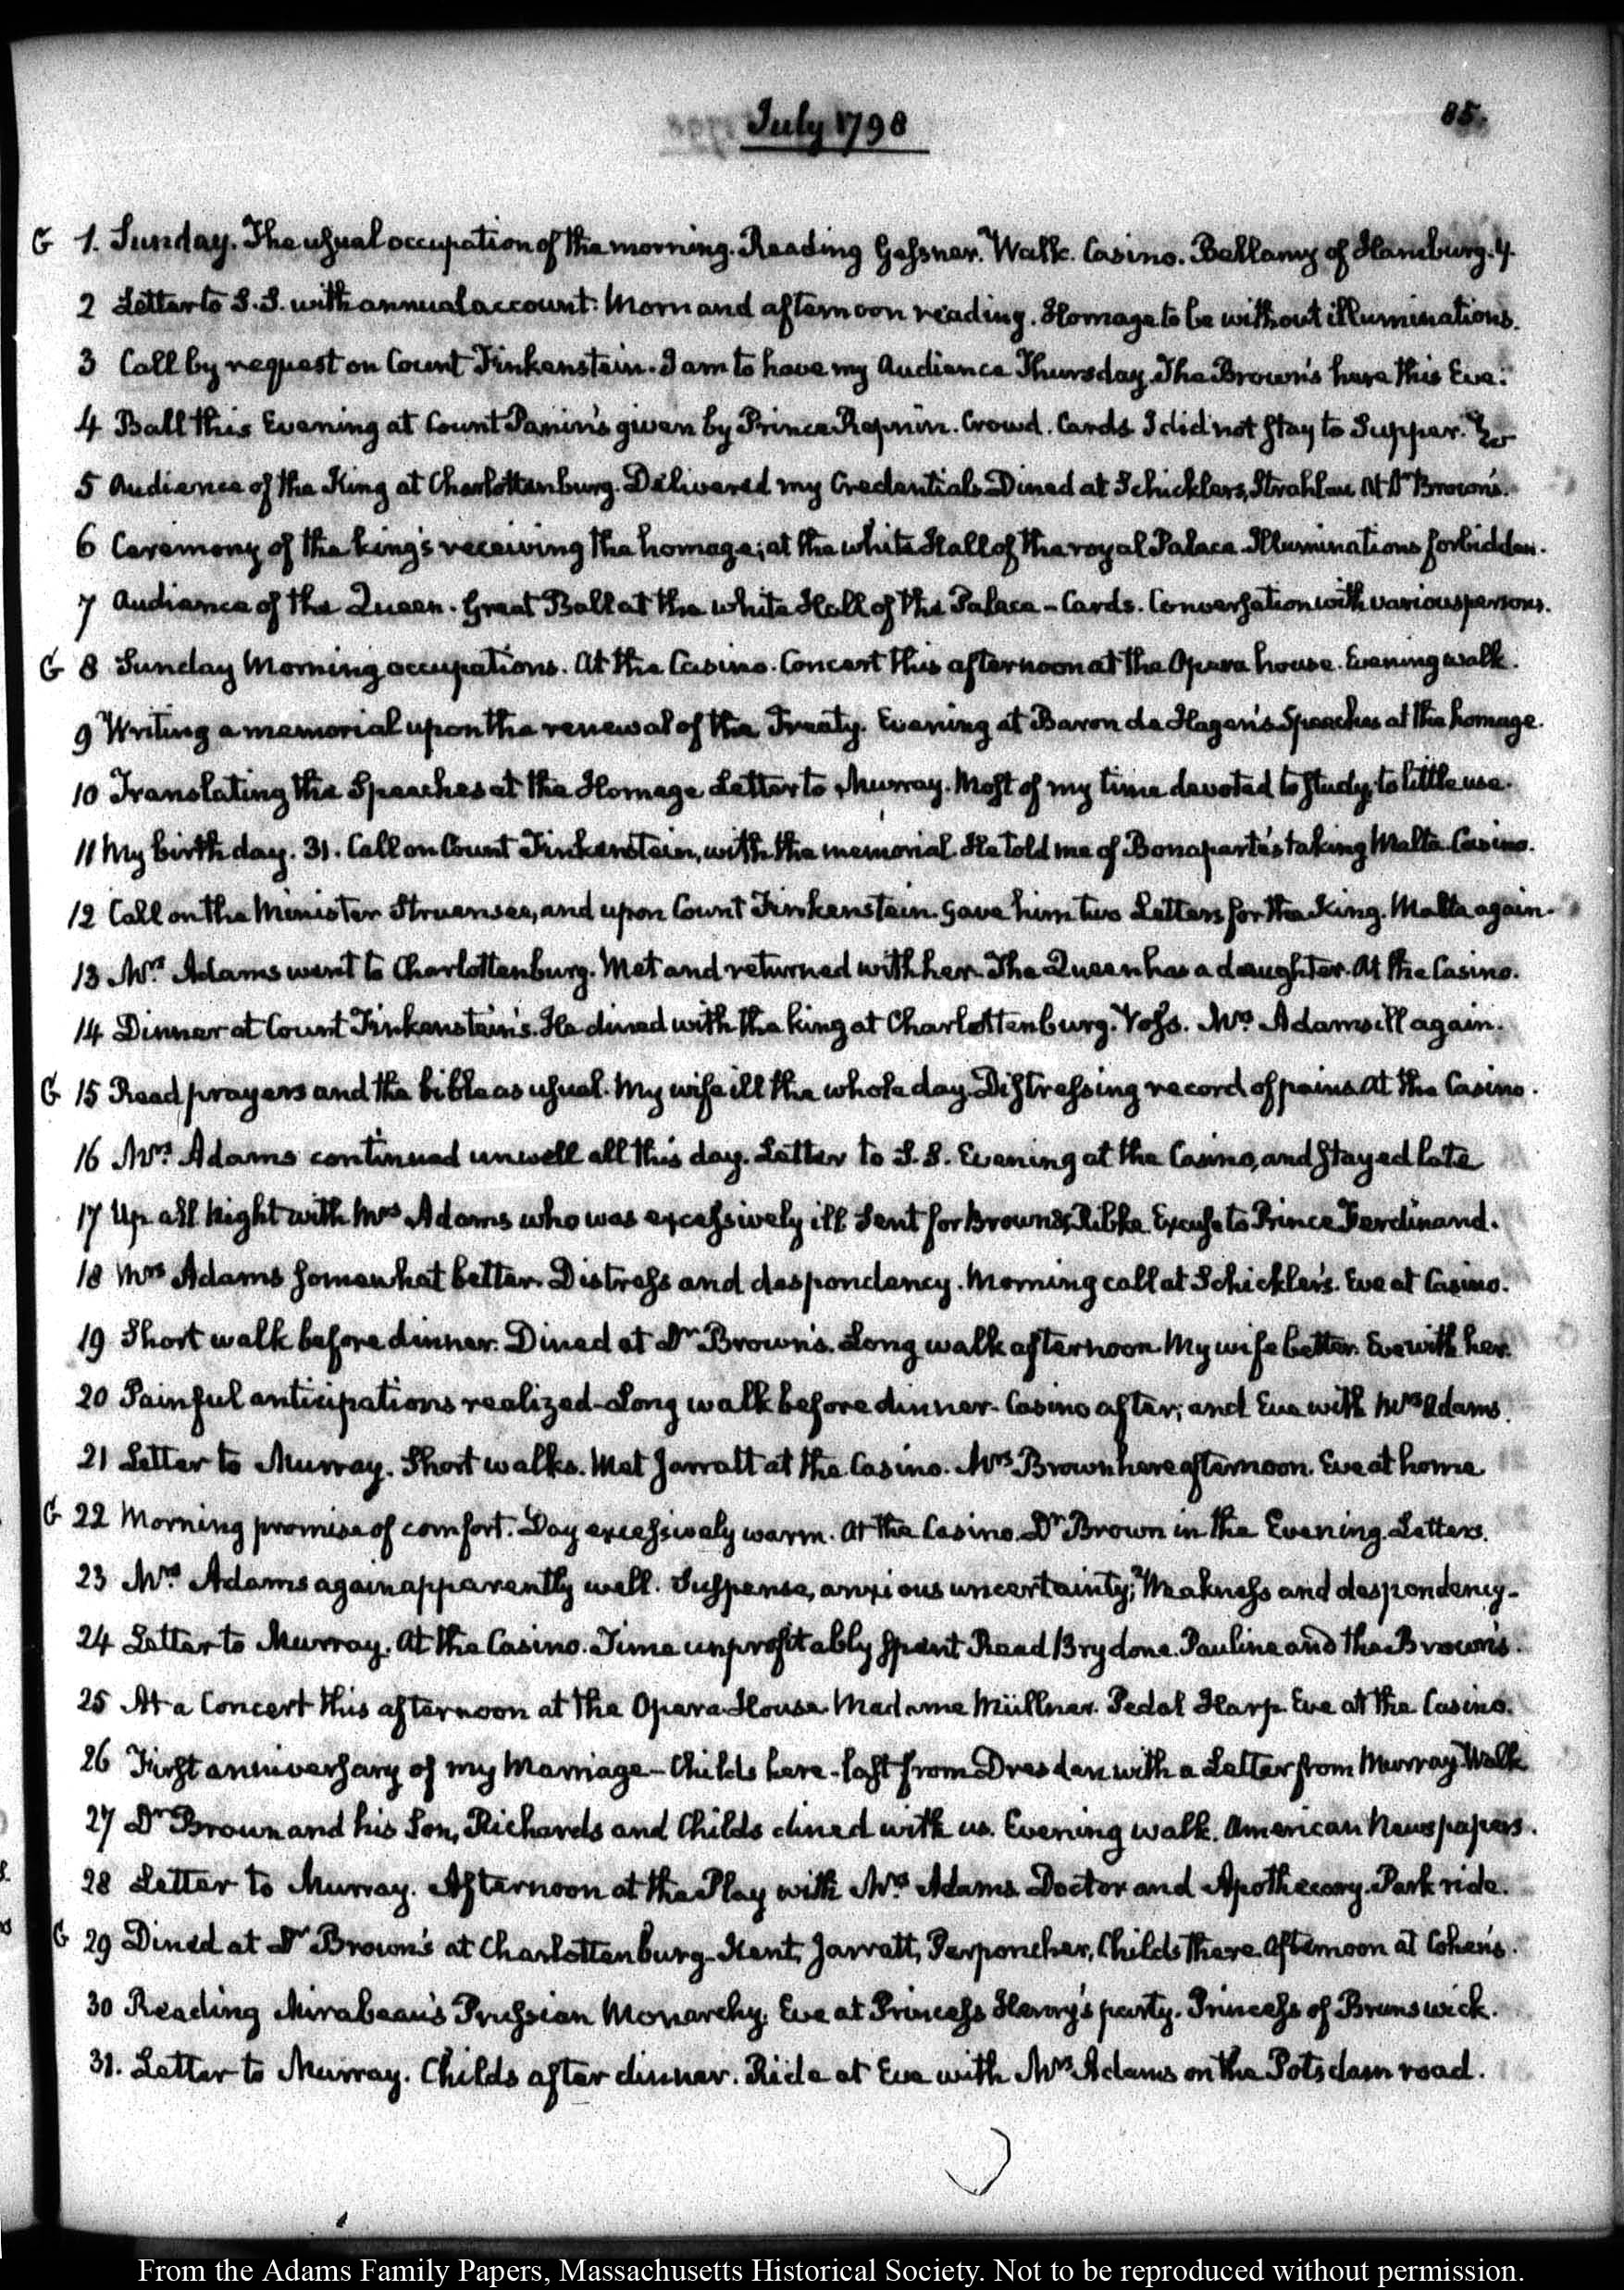 July 1798
85.
G 1. Sunday. The usual occupation of the morning. Reading Gessner. Walk. Casino. Bellamy of Hamburg. 4.
2 Letter to S.S. with annual account. Morn and afternoon reading. Homage to be without illuminations.
3 Call by request on Count Finkenstein. I am to have my Audience Thursday. The Brown's here this Eve.
4 Ball this Evening at Count Panin's given by Prince Repnin. Crowd. Cards. I did not stay to Supper.
5 Audience of the King at Charlottenburg. Delivered my Credentials. Dined at Schicklers, Strahlau. At Dr Brown's.
6 Ceremony of the king's receiving the homage; at the white Hall of the royal Palace. Illuminations forbidden.
7 Audience of the Queen. Great Ball at the white Hall of the Palace - Cards. Conversation with various persons.
G 8 Sunday Morning occupations. At the Casino. Concert this afternoon at the Opera house. Evening walk.
9 Writing a memorial upon the renewal of the Treaty. Evening at Baron de Hagen's. Speeches at the homage.
10 Translating the Speeches at the Homage. Letter to Murray. Most of my time devoted to study; to little use.
11 My birth day. 31. Call on Count Finkenstein, with the memorial. He told me of Bonaparte's taking Malta. Casino.
12 Call on the Minister Struensee, and upon Count Finkenstein. Gave him two Letters for the King. Malta again.
13 Mrs Adams went to Charlottenburg. Met and returned with her. The Queen has a daughter. At the Casino.
14 Dinner at Count Finkenstein's. He dined with the king at Charlottenburg. Voss. Mrs Adams ill again.
G 15 Read prayers and the bible as usual. My wife ill the whole day. Distressing record of pains. At the Casino.
16 Mrs Adams continued unwell all this day. Letter to S.S. Evening at the Casino, and stayed late
17 Up all Night with Mrs Adams who was excessively ill. Sent for Brown & Ribke. Excuse to Prince Ferdinand.
18 Mrs Adams somewhat better. Distress and despondency. Morning call at Schickler's. Eve at Casino.
19 Short walk before dinner. Dined at Dr Brown's. Long walk afternoon. My wife better. Eve with her.
20 Painful anticipations realized - Long walk before dinner - Casino after; and Eve with Mrs Adams.
21 Letter to Murray. Short walks. Met Jarratt at the Casino. Mrs Brown here afternoon. Eve at home
G 22 Morning promise of comfort. Day excessively warm. At the Casino. Dr Brown in the Evening. Letters.
23 Mrs Adams again apparently well. Suspense, anxious uncertainty; Weakness and despondency -
24 Letter to Murray. At the Casino. Time unprofitably spent. Read Brydone. Pauline and the Brown's.
25 At a Concert this afternoon at the Opera House. Madame Müllner. Pedal Harp. Eve at the Casino.
26 First anniversary of my Marriage - Childs here - last from Dresden with a Letter from Murray. Walk
27 Dr Brown and his Son, Richards and Childs dined with us. Evening walk. American Newspapers.
28 Letter to Murray. Afternoon at the Play with Mrs Adams. Doctor and Apothecary. Park ride.
G 29 Dined at Dr Brown's at Charlottenburg - Kent, Jarratt, Perponcher, Childs there. Afternoon at Cohen's.
30 Reading Mirabeau's Prussian Monarchy. Eve at Princess Henry's party. Princess of Brunswick.
31. Letter to Murray. Childs after dinner. Ride at Eve with Mrs Adams on the Potsdam road.
From the Adams Family Papers, Massachusetts Historical Society. Not to be reproduced without permission.